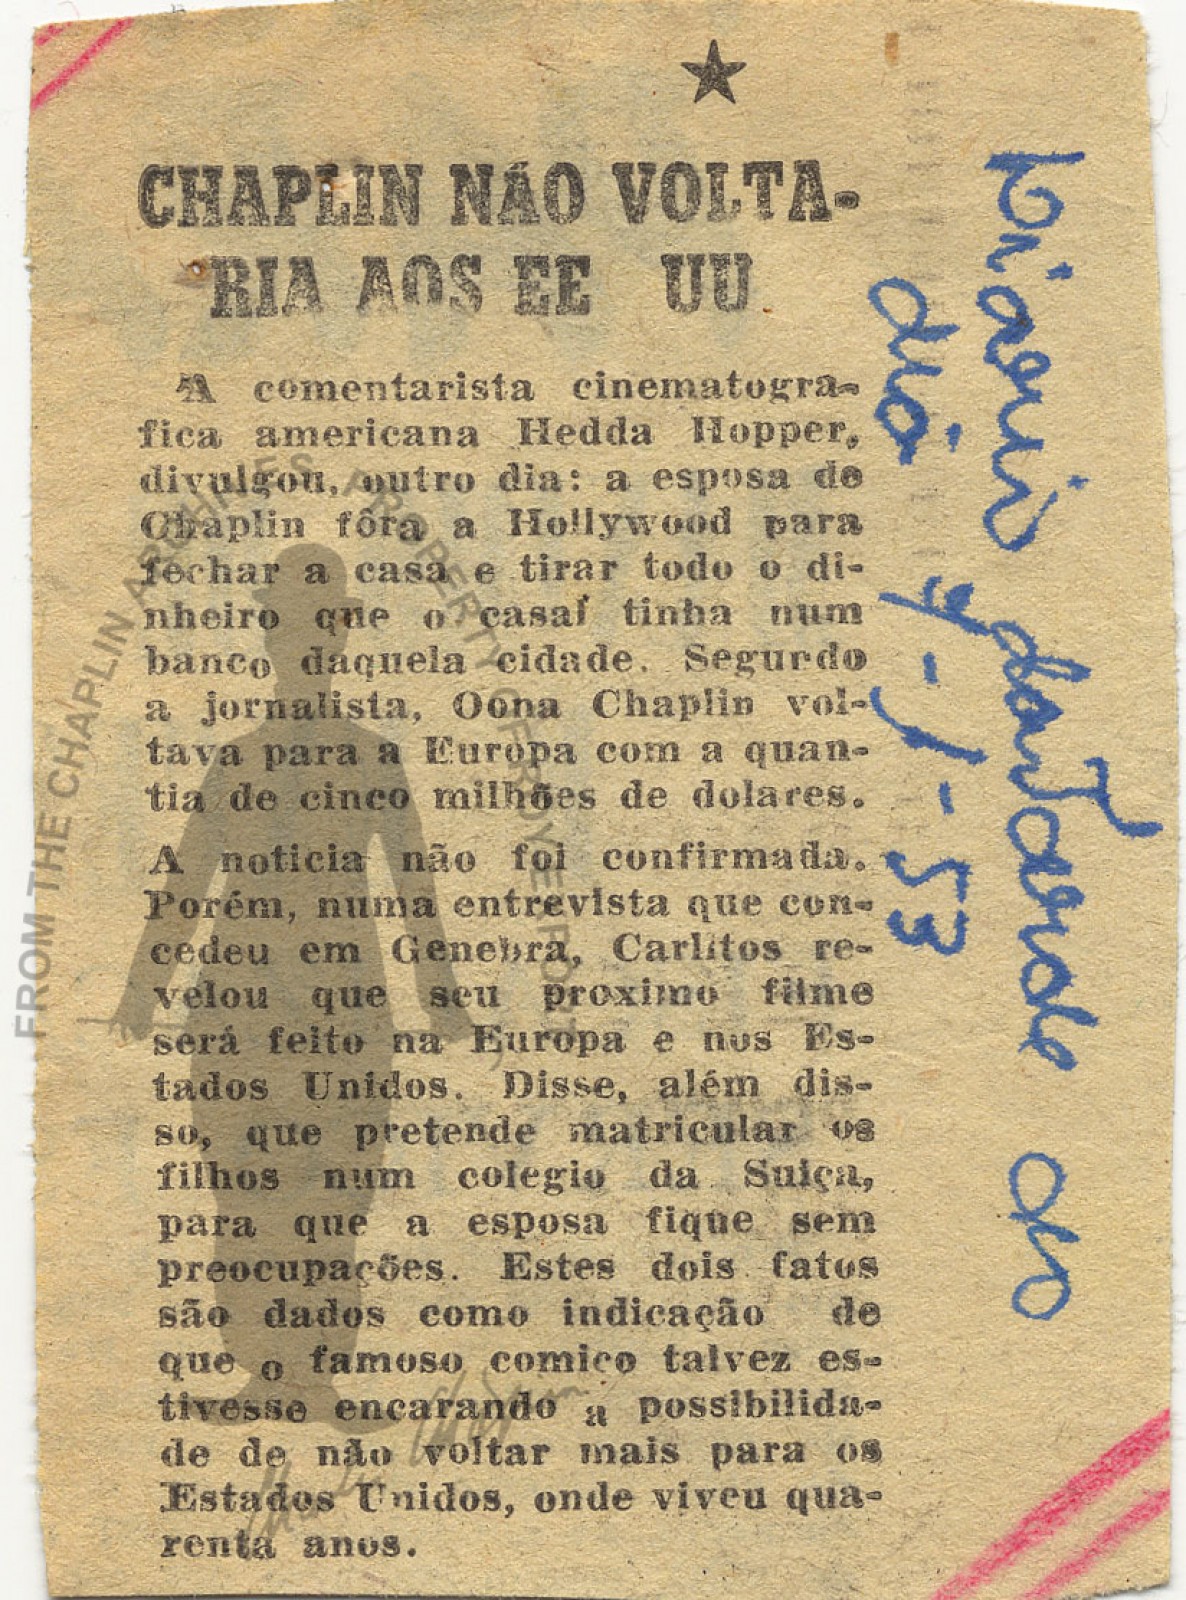 CHAPLIN NÃO VOLTA-
RIA AOS EE UU
A comentarista cinematogra-
fica americana Hedda Hopper,
divulgou, outro dia: a esposa de
Chaplin fôra a Hollywood para
fechar a casa e tirar todo o di-
nheiro que o casal tinha num
banco daquela cidade. Segundo
a jornalista, Oona Chaplin vol-
tava para a Europa com a quan-
tia de cinco milhões de dolares.
A noticia não foi confirmada.
Porém, numa entrevista que con-
cedeu em Genebra, Carlitos re-
velou que seu proximo filme
será feito na Europa e nos Es-
tados Unidos. Disse, além dis-
so, que pretende matricular os
filhos num colegio da Suiça,
para que a esposa fique sem
preocupações. Estes dois fatos
são dados como indicação de
que o famoso comico talvez es-
tivesse encarando a possibilida-
de de não voltar mais para os
Estados Unidos, onde viveu qua-
renta anos.
Diario da tarde do
dia 9-1-53
FROM THE CHAPLIN ARCHIVES, PROPERTY OF ROY EXPORT
Charles Chaplin